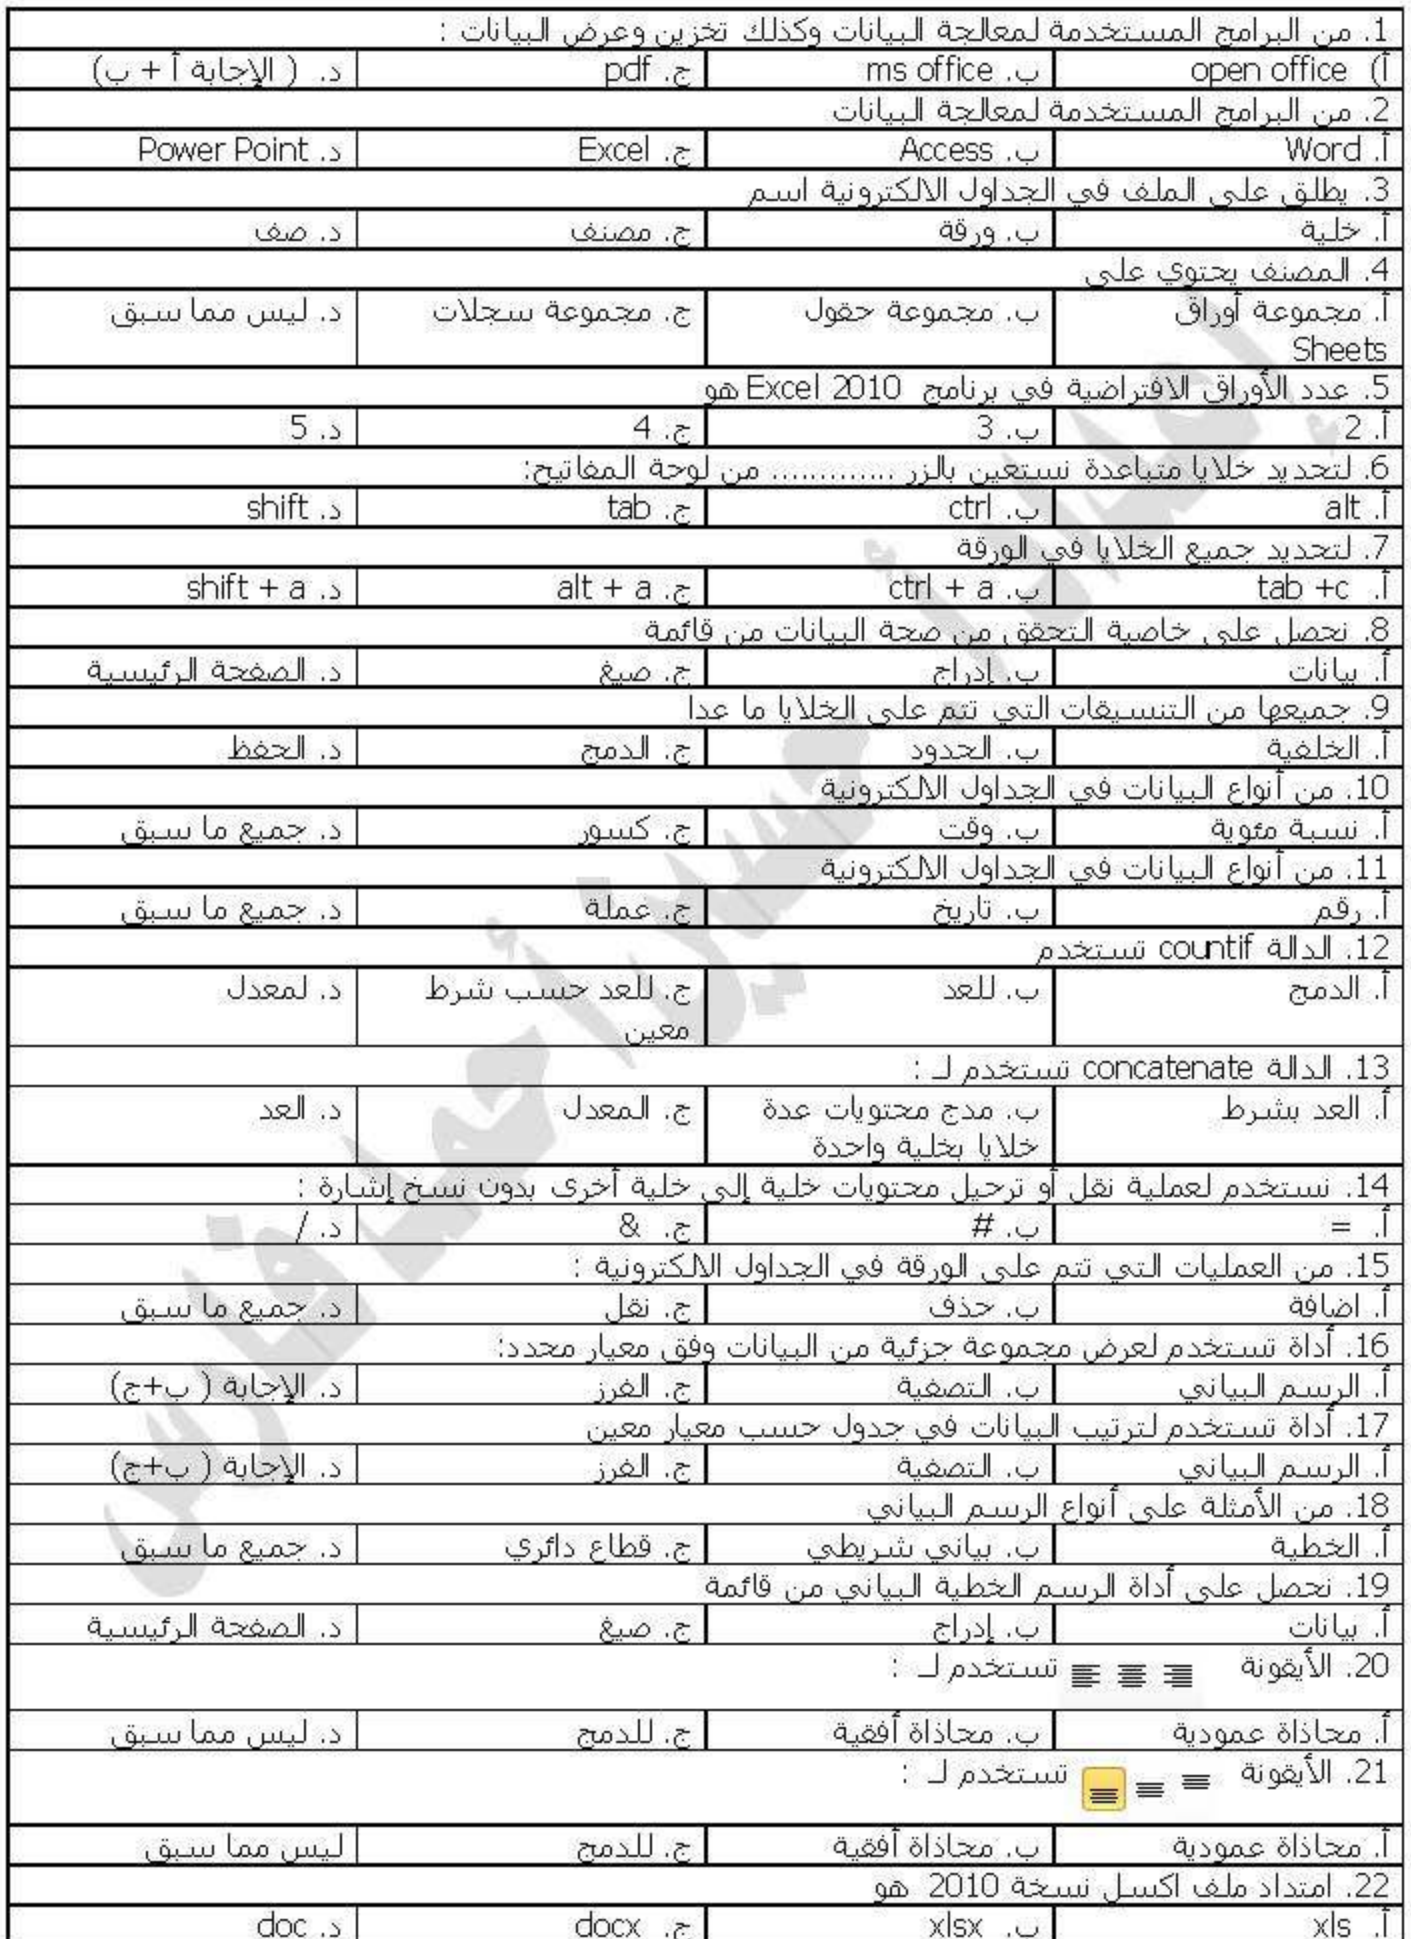 1. من البرامج المستخدمة لمعالجة البيانات وكذلك تخزين وعرض البيانات :
أ) open office ب. ms office ج. pdf د. ( الإجابة أ + ب)
2. من البرامج المستخدمة لمعالجة البيانات
أ. Word ب. Access ج. Excel د. Power Point
3. يطلق على الملف في الجداول الالكترونية اسم
أ. خلية ب. ورقة ج. مصنف د. صف
4. المصنف يحتوي على
أ. مجموعة أوراق ب. مجموعة حقول ج. مجموعة سجلات د. ليس مما سبق
Sheets
5. عدد الأوراق الافتراضية في برنامج Excel 2010 هو
أ. 2 ب. 3 ج. 4 د. 5
6. لتحديد خلايا متباعدة نستعين بالزر ............. من لوحة المفاتيح:
أ. alt ب. ctrl ج. tab د. shift
7. لتحديد جميع الخلايا في الورقة
أ. tab +c ب. ctrl + a ج. alt + a د. shift + a
8. نحصل على خاصية التحقق من صحة البيانات من قائمة
أ. بيانات ب. إدراج ج. صيغ د. الصفحة الرئيسية
9. جميعها من التنسيقات التي تتم على الخلايا ما عدا
أ. الخلفية ب. الحدود ج. الدمج د. الحفظ
10. من أنواع البيانات في الجداول الالكترونية
أ. نسبة مئوية ب. وقت ج. كسور د. جميع ما سبق
11. من أنواع البيانات في الجداول الالكترونية
أ. رقم ب. تاريخ ج. عملة د. جميع ما سبق
12. الدالة countif تستخدم
أ. الدمج ب. للعد ج. للعد حسب شرط د. لمعدل
معين
13. الدالة concatenate تستخدم لـ :
أ. العد بشرط ب. مدج محتويات عدة ج. المعدل د. العد
خلايا بخلية واحدة
14. نستخدم لعملية نقل أو ترحيل محتويات خلية إلى خلية أخرى بدون نسخ إشارة :
أ. = ب. # ج. & د. /
15. من العمليات التي تتم على الورقة في الجداول الالكترونية :
أ. اضافة ب. حذف ج. نقل د. جميع ما سبق
16. أداة تستخدم لعرض مجموعة جزئية من البيانات وفق معيار محدد:
أ. الرسم البياني ب. التصفية ج. الفرز د. الإجابة ( ب+ج)
17. أداة تستخدم لترتيب البيانات في جدول حسب معيار معين
أ. الرسم البياني ب. التصفية ج. الفرز د. الإجابة ( ب+ج)
18. من الأمثلة على أنواع الرسم البياني
أ. الخطية ب. بياني شريطي ج. قطاع دائري د. جميع ما سبق
19. نحصل على أداة الرسم الخطية البياني من قائمة
أ. بيانات ب. إدراج ج. صيغ د. الصفحة الرئيسية
20. الأيقونة تستخدم لـ :
أ. محاذاة عمودية ب. محاذاة أفقية ج. للدمج د. ليس مما سبق
21. الأيقونة تستخدم لـ :
أ. محاذاة عمودية ب. محاذاة أفقية ج. للدمج ليس مما سبق
22. امتداد ملف اكسل نسخة 2010 هو
أ. xls ب. xlsx ج. docx د. doc
إعداد أ. حسين أحمد فارس